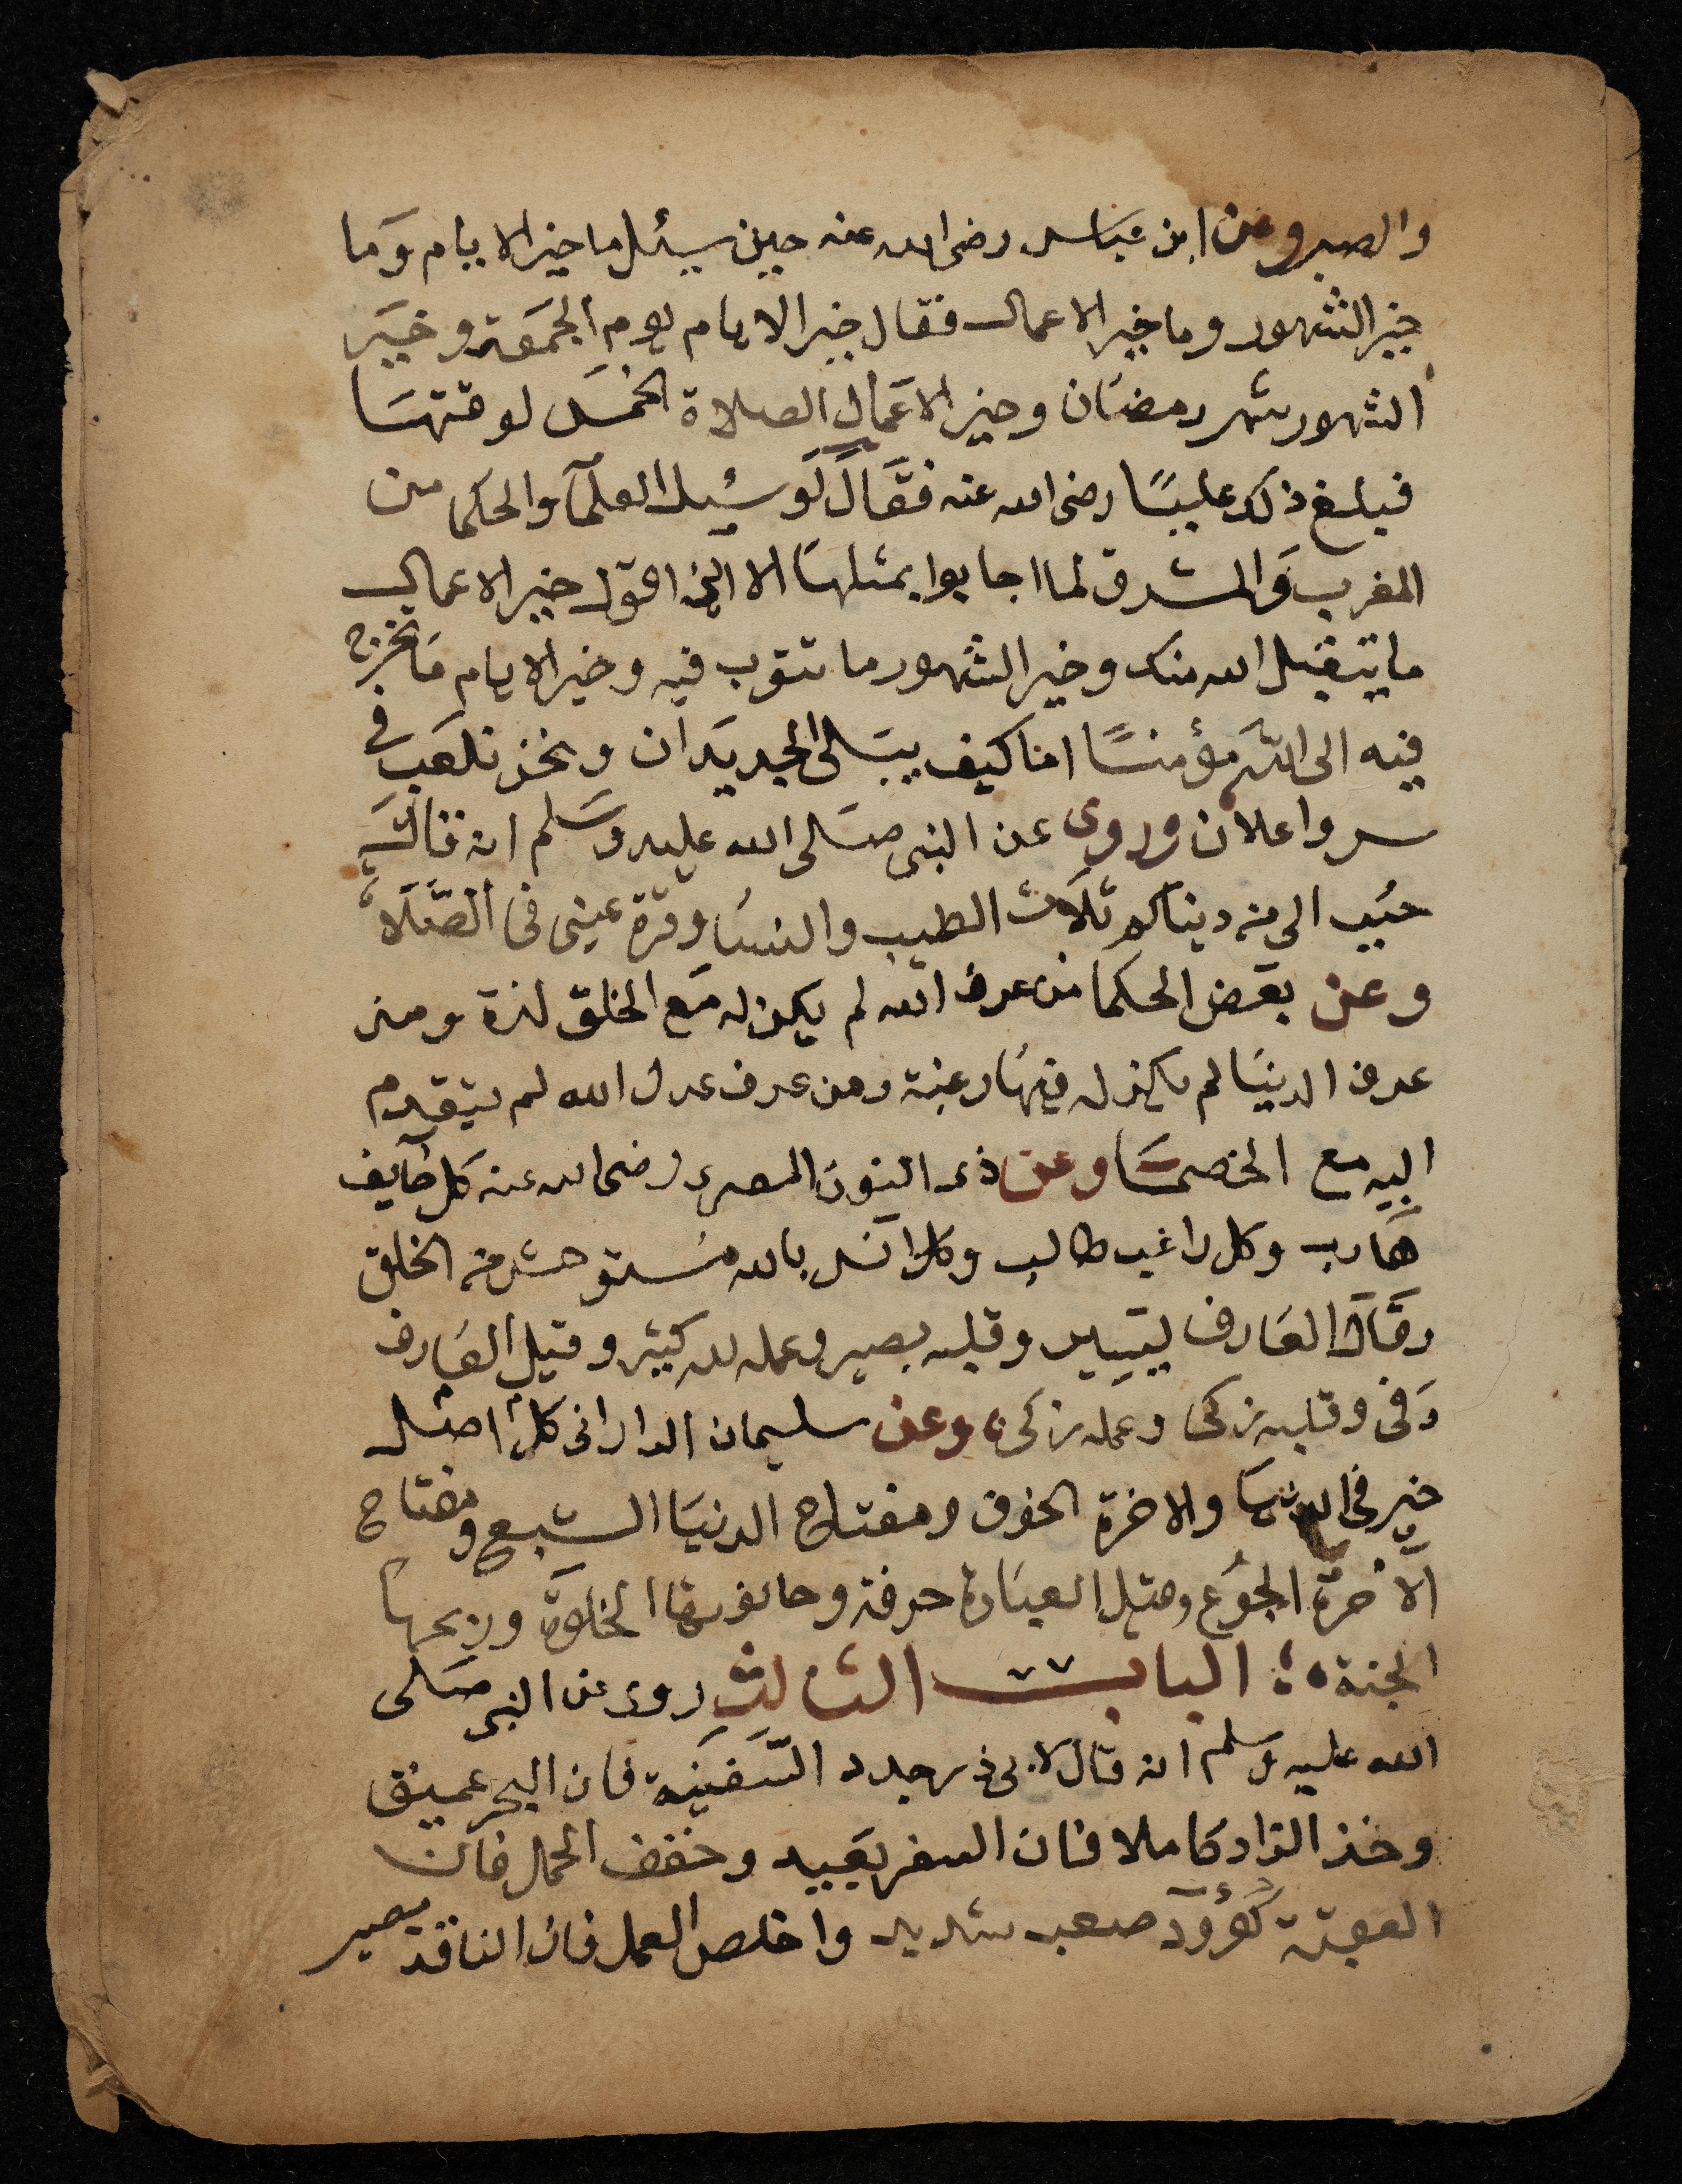 والصبر وعن ابن عباس رضى الله عنه حين سيئل ما خير الايام وما
خير الشهور وما خير الاعمال فقال خير الايام يوم الجمعة وخير
الشهور شهر رمضان وخير الاعمال الصلاة الخمس لوقتها
فبلغ ذلك عليا رضى الله عنه فقال لو سئل العلمآ والحكما من
المغرب والمشرق لما اجابوا بمثلها الا انى اقول خير الاعمال
ما يتقبل الله منك وخير الشهور ما تتوب فيه وخير الايام ما تخرج
فيه الى الله مؤمنا اما كيف يبلى الجديدان ونحن نلعب فى
سر واعلان وروى عن النبى صلى الله عليه وسلم انه قال
حبب الى من دنياكم ثلاث الطيب والنسا وقرة عينى فى الصلاة
وعن بعض الحكما من عرف الله لم يكن له مع الخلق لذة ومن
عرف الدنيا لم يكن له فيها رغبة ومن عرف عدل الله لم يتقدم
اليه مع الخصما وعن ذى النون المصرى رضى الله عنه كل خايف
هارب وكل راغب طالب وكل انس بالله مستوحش من الخلق
وقال العارف وقلبه بصير وعمله لله كثير وقيل العارف
وفى وقلبه زكى وعمله زكى وعن سليمان الدارانى كل اصل
خير فى الدنيا والاخرة الخوف ومفتاح الدنيا الشبع ومفتاح
الآخرة الجوع وقيل العبادة حرفة وحانوتها الخلوة وربحها
الجنة الباب الثالث روى عن النبى صلى
الله عليه وسلم انه قال لابى ذر جدد السفينة فان البحر عميق
وخذ الزاد كاملا فان السفر بعيد وخفف الحمل فان
العقبة كؤود صعب شديد واخلص العمل فان الناقد بصير